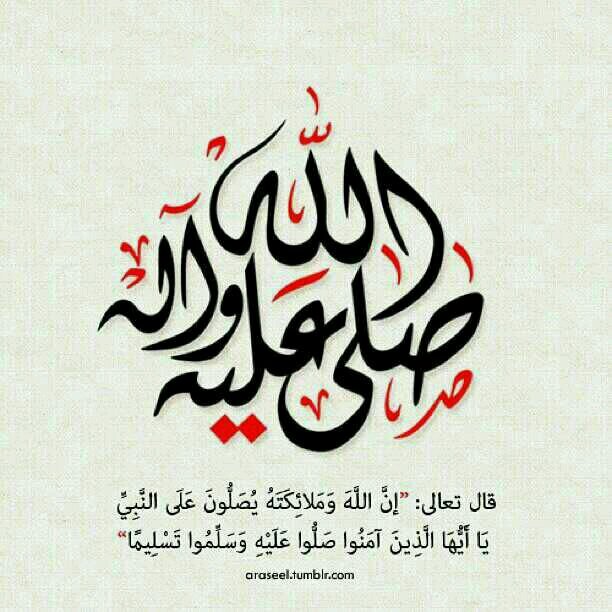 صلى الله عليه وآله
قال تعالى: "إنَّ اللَّهَ وَمَلائِكَتَهُ يُصَلُّونَ عَلَى النَّبِيِّ
يَا أَيُّهَا الَّذِينَ آمَنُوا صَلُّوا عَلَيْهِ وَسَلِّمُوا تَسْلِيمًا"
araseel.tumblr.com